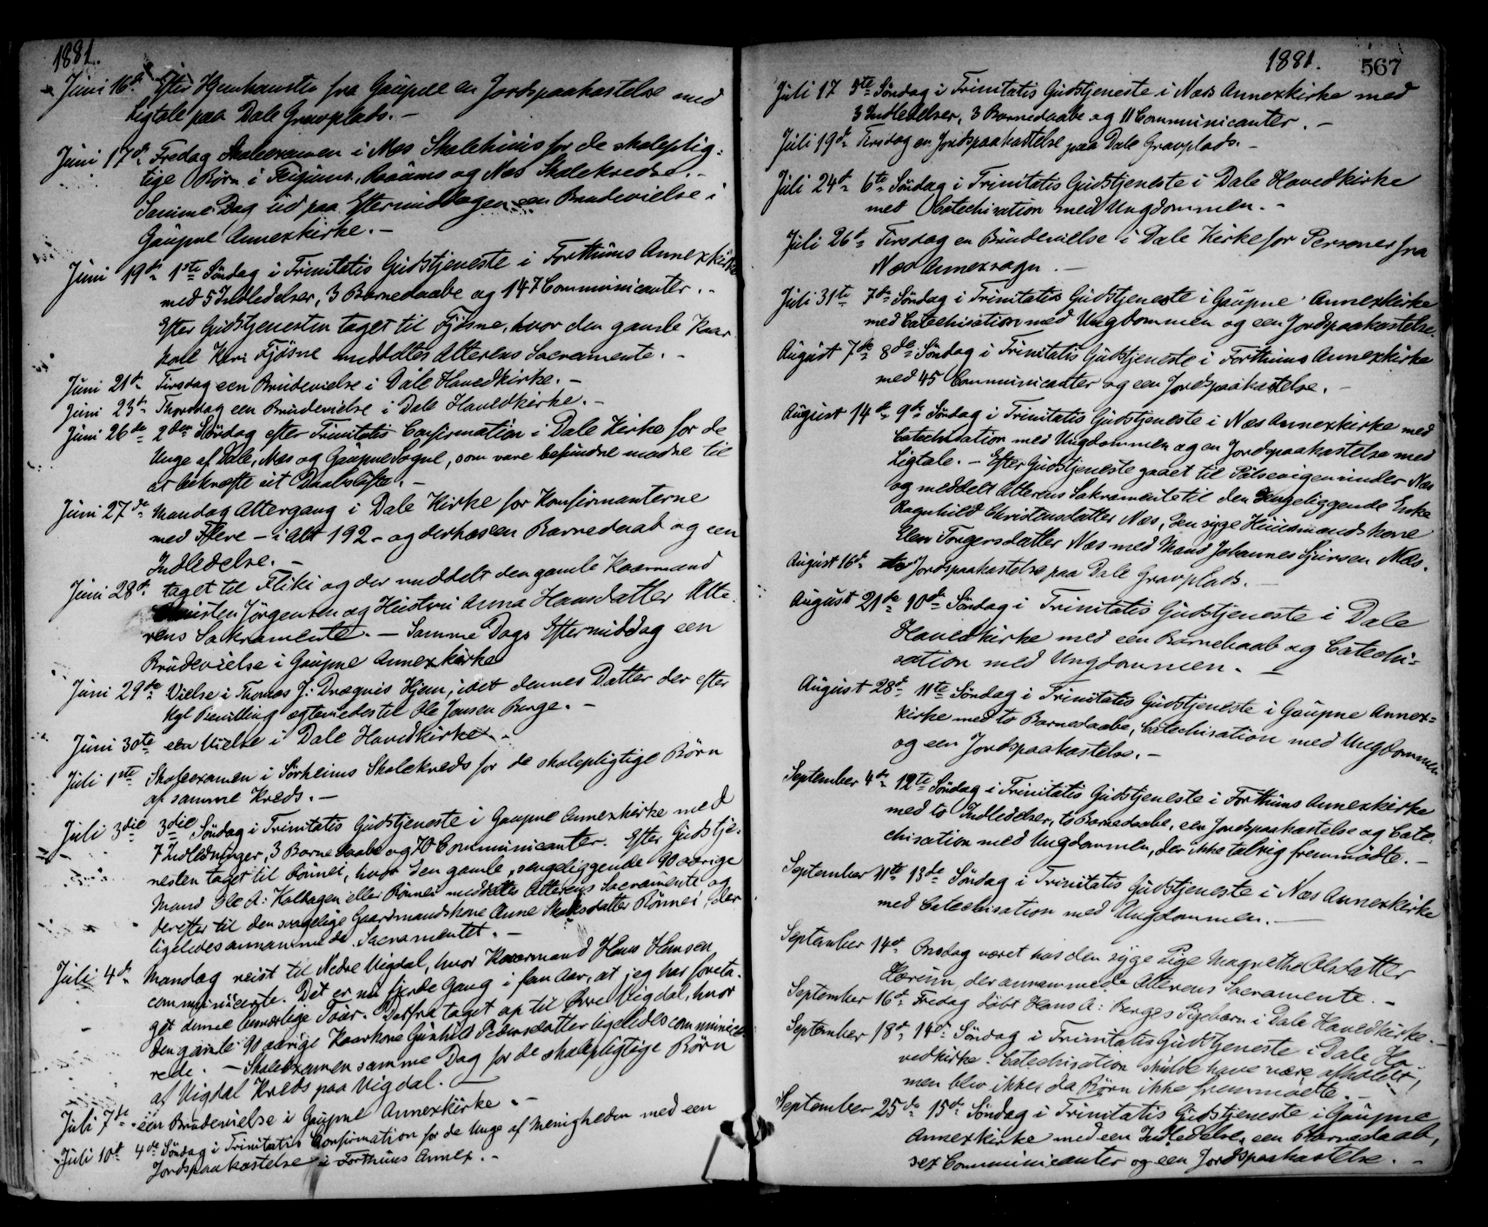 1881.
Juni 16de Efter Hjemkomsten fra Gaupne en Jordspaakastelse med
Ligtale paa Dale Gravplads. -
Juni 17de Fredag Skoleexamen i Næs Skolehuus for de skoleplig-
tige Børn i Næs Skolekredse. -
Samme Dag ud paa Eftermiddagen een Brudevielse i
Gaupne Annexkirke. -
Juni 19de 1ste Søndag i Trinitatis Gudstjeneste i Forthuns Annexkirke
med 5 Indledelser, 3 Barnedaabe og 147 Communicanter. -
Efter Gudstjenesten taget til Fjøsne, hvor den gamle Kaar
kall Fjøsne meddeltes Alterens Sacramente. -
Juni 21de Tirsdag een Brudevielse i Dale Hovedkirke. -
Juni 23de Thorsdag een Brudevielse i Dale Hovedkirke. -
Juni 26de 2den Søndag efter Trinitatis Confirmation i Dale Kirke for de
Unge af Dale, Næs og Gaupne Sogne, som vare befundne modne til
at bekræfte sit Daabsløfte. -
Juni 27de Mandag Altergang i Dale Kirke for Konfirmanterne
med Flere - i Alt 192 - og derhos en Barnedaab og een
Indledelse. -
Juni 28de taget til Fliki og der meddelt den gamle Kaarmand
Jørgensen og Hustru Anna Hansdatter Alte-
rens Sakramente. - Samme Dags Eftermiddag een
Brudevielse i Gaupne Annexkirke
Juni 29de Vielse i Thomas J: Drægnis Hjem, idet dennes Datter der efter
Kgl Bevilling ægteviedes til Ole Jonsen Berge. -
Juni 30te een Vielse i Dale Hovedkirke. -
Juli 1ste Skoleexamen i Sørheims Skolekreds for de skolepligtige Børn
af samme Kreds. -
Juli 3die 3die Søndag i Trinitatis Gudstjeneste i Gaupne Annexkirke med
7 Indledninger, 3 Barnedaabe og 70 Communicanter. Efter Gudstje-
nesten taget til Rønnei, hvor den gamle, sengeliggende 90 aarige
Mand Ole A: Kolhagen eller Rønnei meddeltes Alterens Sacramente og
derefter til den svagelige Gaardmandskone Anne datter Rønnei, der
ligeledes annammede Sacramentet. -
Juli 4de Mandag reist til Nedre Vigdal, hvor Kaarmand Hans Hansen
communicerte. Det er nu fjerde Gang i fem Aar, at jeg har foreta-
get denne Tour. Derfra taget op til Øvre Vigdal, hvor
den gamle 90 aarige Kaarkone Gunhild Pedersdatter ligeledes communice-
rede. - Skoleexamen samme Dag for de skolepligtige Børn
af Vigdal Kreds paa Vigdal. -
Juli 7de een Brudevielse i Gaupne Annexkirke. -
Juli 10de 4de Søndag i Trinitatis Confirmation for de Unge af Menigheden med een
Jordspaakastelse i Forthuns Annex. -
1881. 567
Juli 17 5te Søndag i Trinitatis Gudstjeneste i Næs Annexkirke med
3 Indledelser, 3 Barnedaabe og 11 Communicanter. -
Juli 19de Tirsdag en Jordspaakastelse paa Dale Gravplads. -
Juli 24de 6te Søndag i Trinitatis Gudstjeneste i Dale Hovedkirke
med Catechisation med Ungdommen. -
Juli 26de Tirsdag en Brudevielse i Dale Kirke for Personer fra
Næs Annexsogn. -
Juli 31te 7de Søndag i Trinitatis Gudstjeneste i Gaupne Annexkirke
med Catechisation med Ungdommen og een Jordspaakastelse.
August 7de 8de Søndag i Trinitatis Gudstjeneste i Forthuns Annexkirke
med 45 Communicanter og een Jordspaakastelse. -
August 14de 9de Søndag i Trinitatis Gudstjeneste i Næs Annexkirke med
Catechisation med Ungdommen og en Jordspaakastelse med
Ligtale. - Efter Gudstjeneste gaaet til under Næs
og meddelt Alterens Sakramente til den sengeliggende Enke
Ragnhild Christensdatter Næs, den syge Huusmandskone
Elen Torgersdatter Næs med Mand Johannes Sjursen Næs.
August 16de Jordspaakastelse paa Dale Gravplads. -
August 21de 10de Søndag i Trinitatis Gudstjeneste i Dale
Hovedkirke med een Barnedaab og Catechi-
sation med Ungdommen. -
August 28de 11te Søndag i Trinitatis Gudstjeneste i Gaupne Annex-
kirke med to Barnedaabe, Catechisation med Ungdommen
og een Jordspaakastelse. -
September 4de 12te Søndag i Trinitatis Gudstjeneste i Forthuns Annexkirke
med to Indledelser, to Barnedaabe, een Jordspaakastelse og Cate-
chisation med Ungdommen, der ikke talrig fremmødte. -
September 11te 13de Søndag i Trinitatis Gudstjeneste i Næs Annexkirke
med Catechisation med Ungdommen. -
September 14de Onsdag været hos den syge Pige Magrethe Olsdatter
, der annammede Alterens Sacramente. -
September 16de Fredag døbt Hans A: Berges Pigebarn i Dale Hovedkirke. -
September 18de 14de Søndag i Trinitatis Gudstjeneste i Dale Ho-
vedkirke. Catechisation skulde have være afholdt,
men blev ikke, da Børn ikke fremmødte. -
September 25de 15de Søndag i Trinitatis Gudstjeneste i Gaupne
Annexkirke med een Indledelse, een Barnedaab,
sex Communicanter og een Jordspaakastelse. -